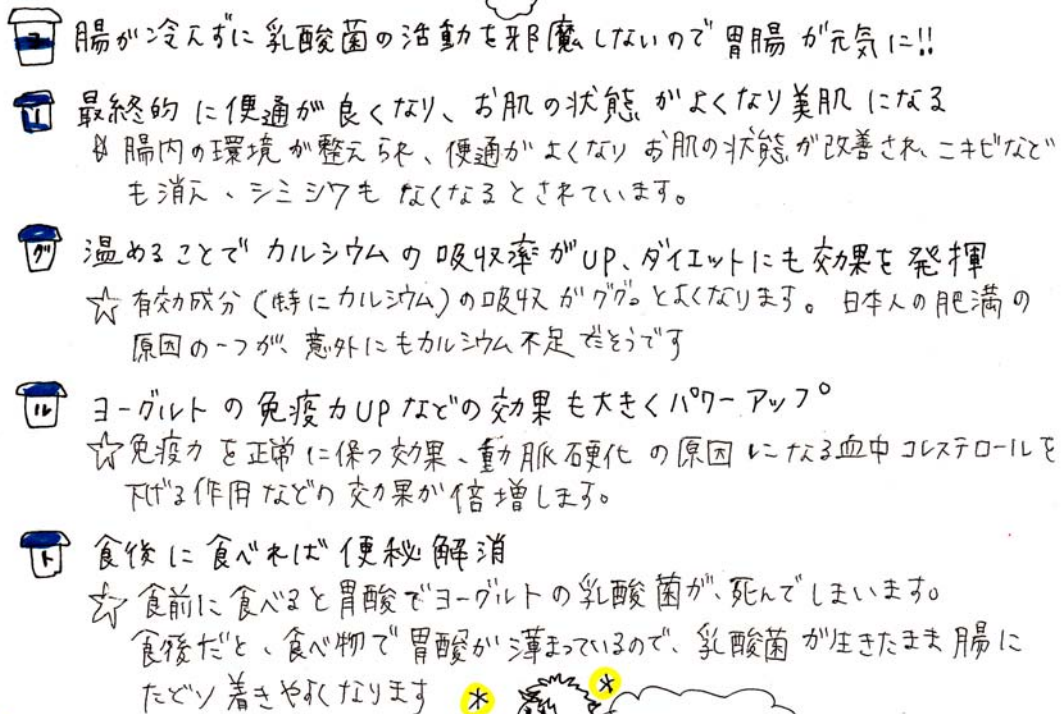 ヨ 腸が冷えずに乳酸菌の活動を邪魔しないので胃腸が元気に!!
ー 最終的に便通が良くなり、お肌の状態がよくなり美肌になる
☆腸内の環境が整えられ、便通がよくなりお肌の状態が改善され、ニキビなど
も消え、シミシワもなくなるとされています。
グ 温めることでカルシウムの吸収率がUP、ダイエットにも効果を発揮
☆有効成分(特にカルシウム)の吸収がググっとよくなります。日本人の肥満の
原因の一つが、意外にもカルシウム不足だそうです
ル ヨーグルトの免疫力UPなどの効果も大きくパワーアップ。
☆免疫力を正常に保つ効果、動脈硬化の原因になる血中コレステロールを
下げる作用などの効果が倍増します。
ト 食後に食べれば便秘解消
☆食前に食べると胃酸でヨーグルトの乳酸菌が、死んでしまいます。
食後だと、食べ物で胃酸が薄まっているので、乳酸菌が生きたまま腸に
たどり着きやすくなります